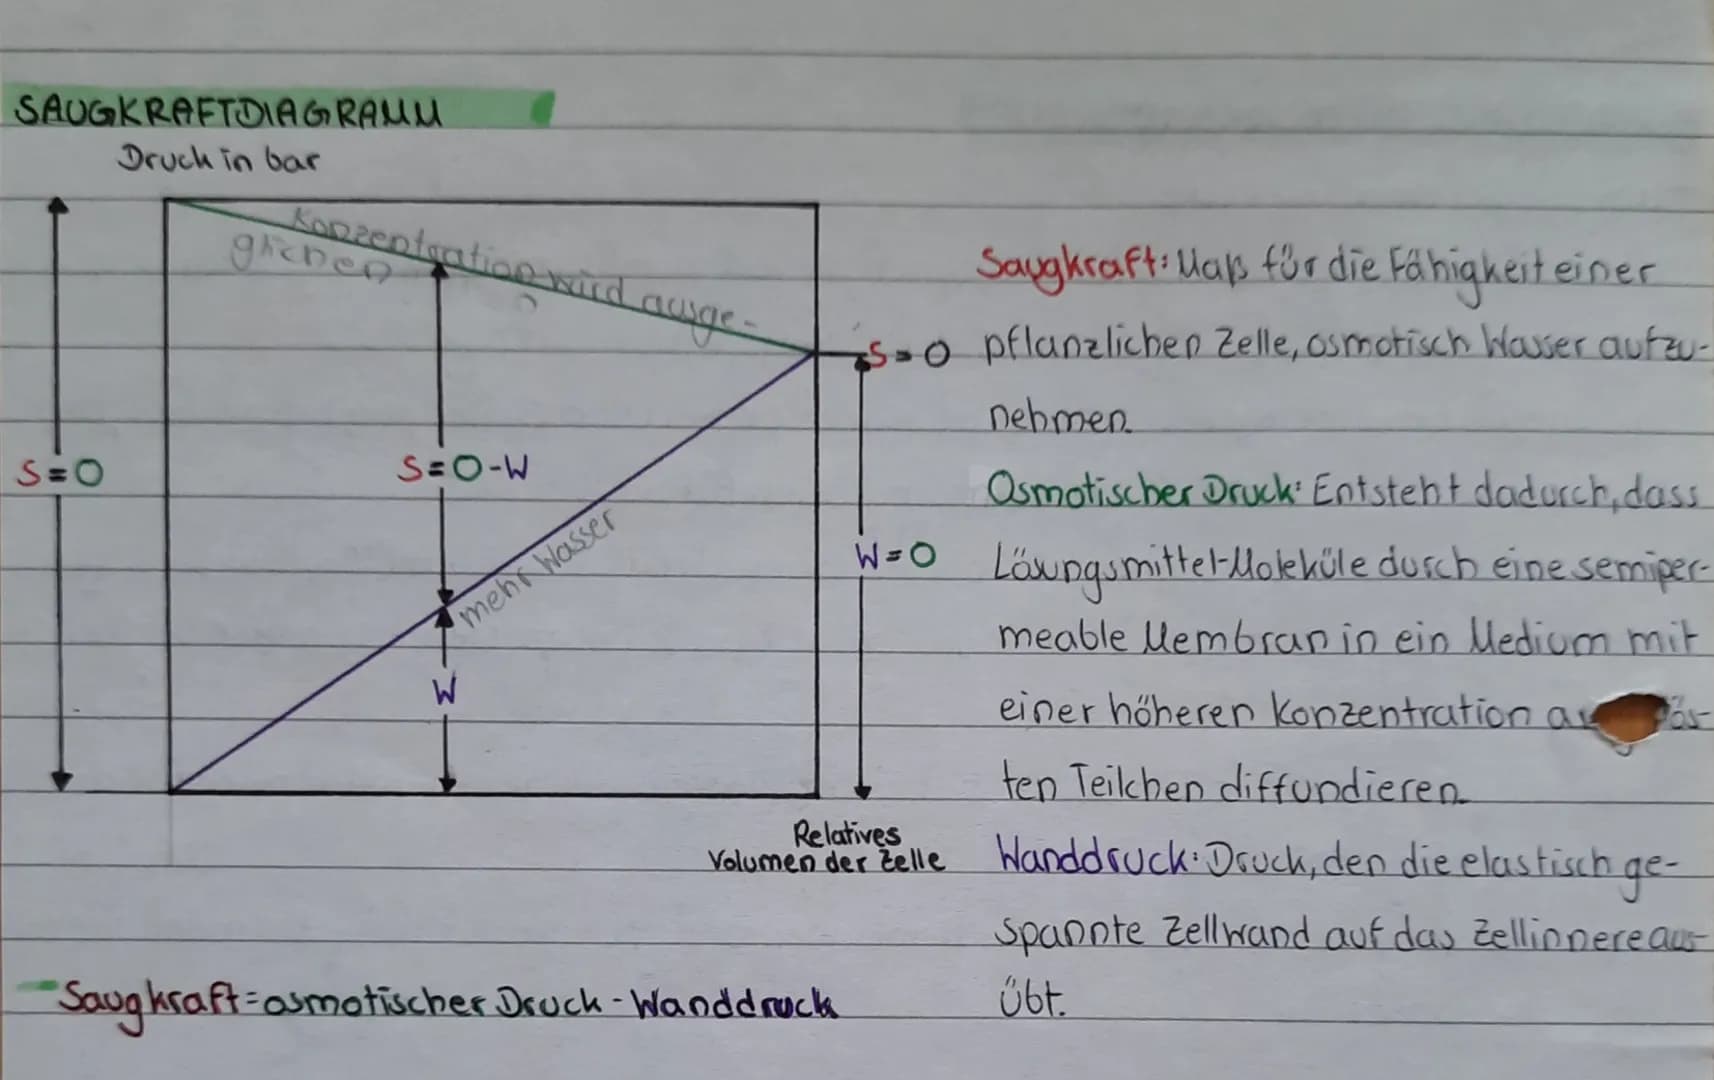 SAUGKRAFTDIAGRAMM
Druck in bar
Konzentration wird ausge-
glichen
S=O
S=O-W
mehr Wasser
W
S=O
W=O
Relatives
Volumen der Zelle
Saugkraft=osmotischer Druck-Wanddruck
Saugkraft: Maß für die Fähigkeit einer
pflanzlichen Zelle, osmotisch Wasser aufzu-
nehmen.
Osmotischer Druck: Entsteht dadurch, dass
Lösungsmittel-Moleküle durch eine semiper-
meable Membran in ein Medium mit
einer höheren Konzentration
ten Teilchen diffundieren.
Wanddruck: Druck, den die elastisch ge-
spannte Zellwand auf das Zellinnere aus-
übt.